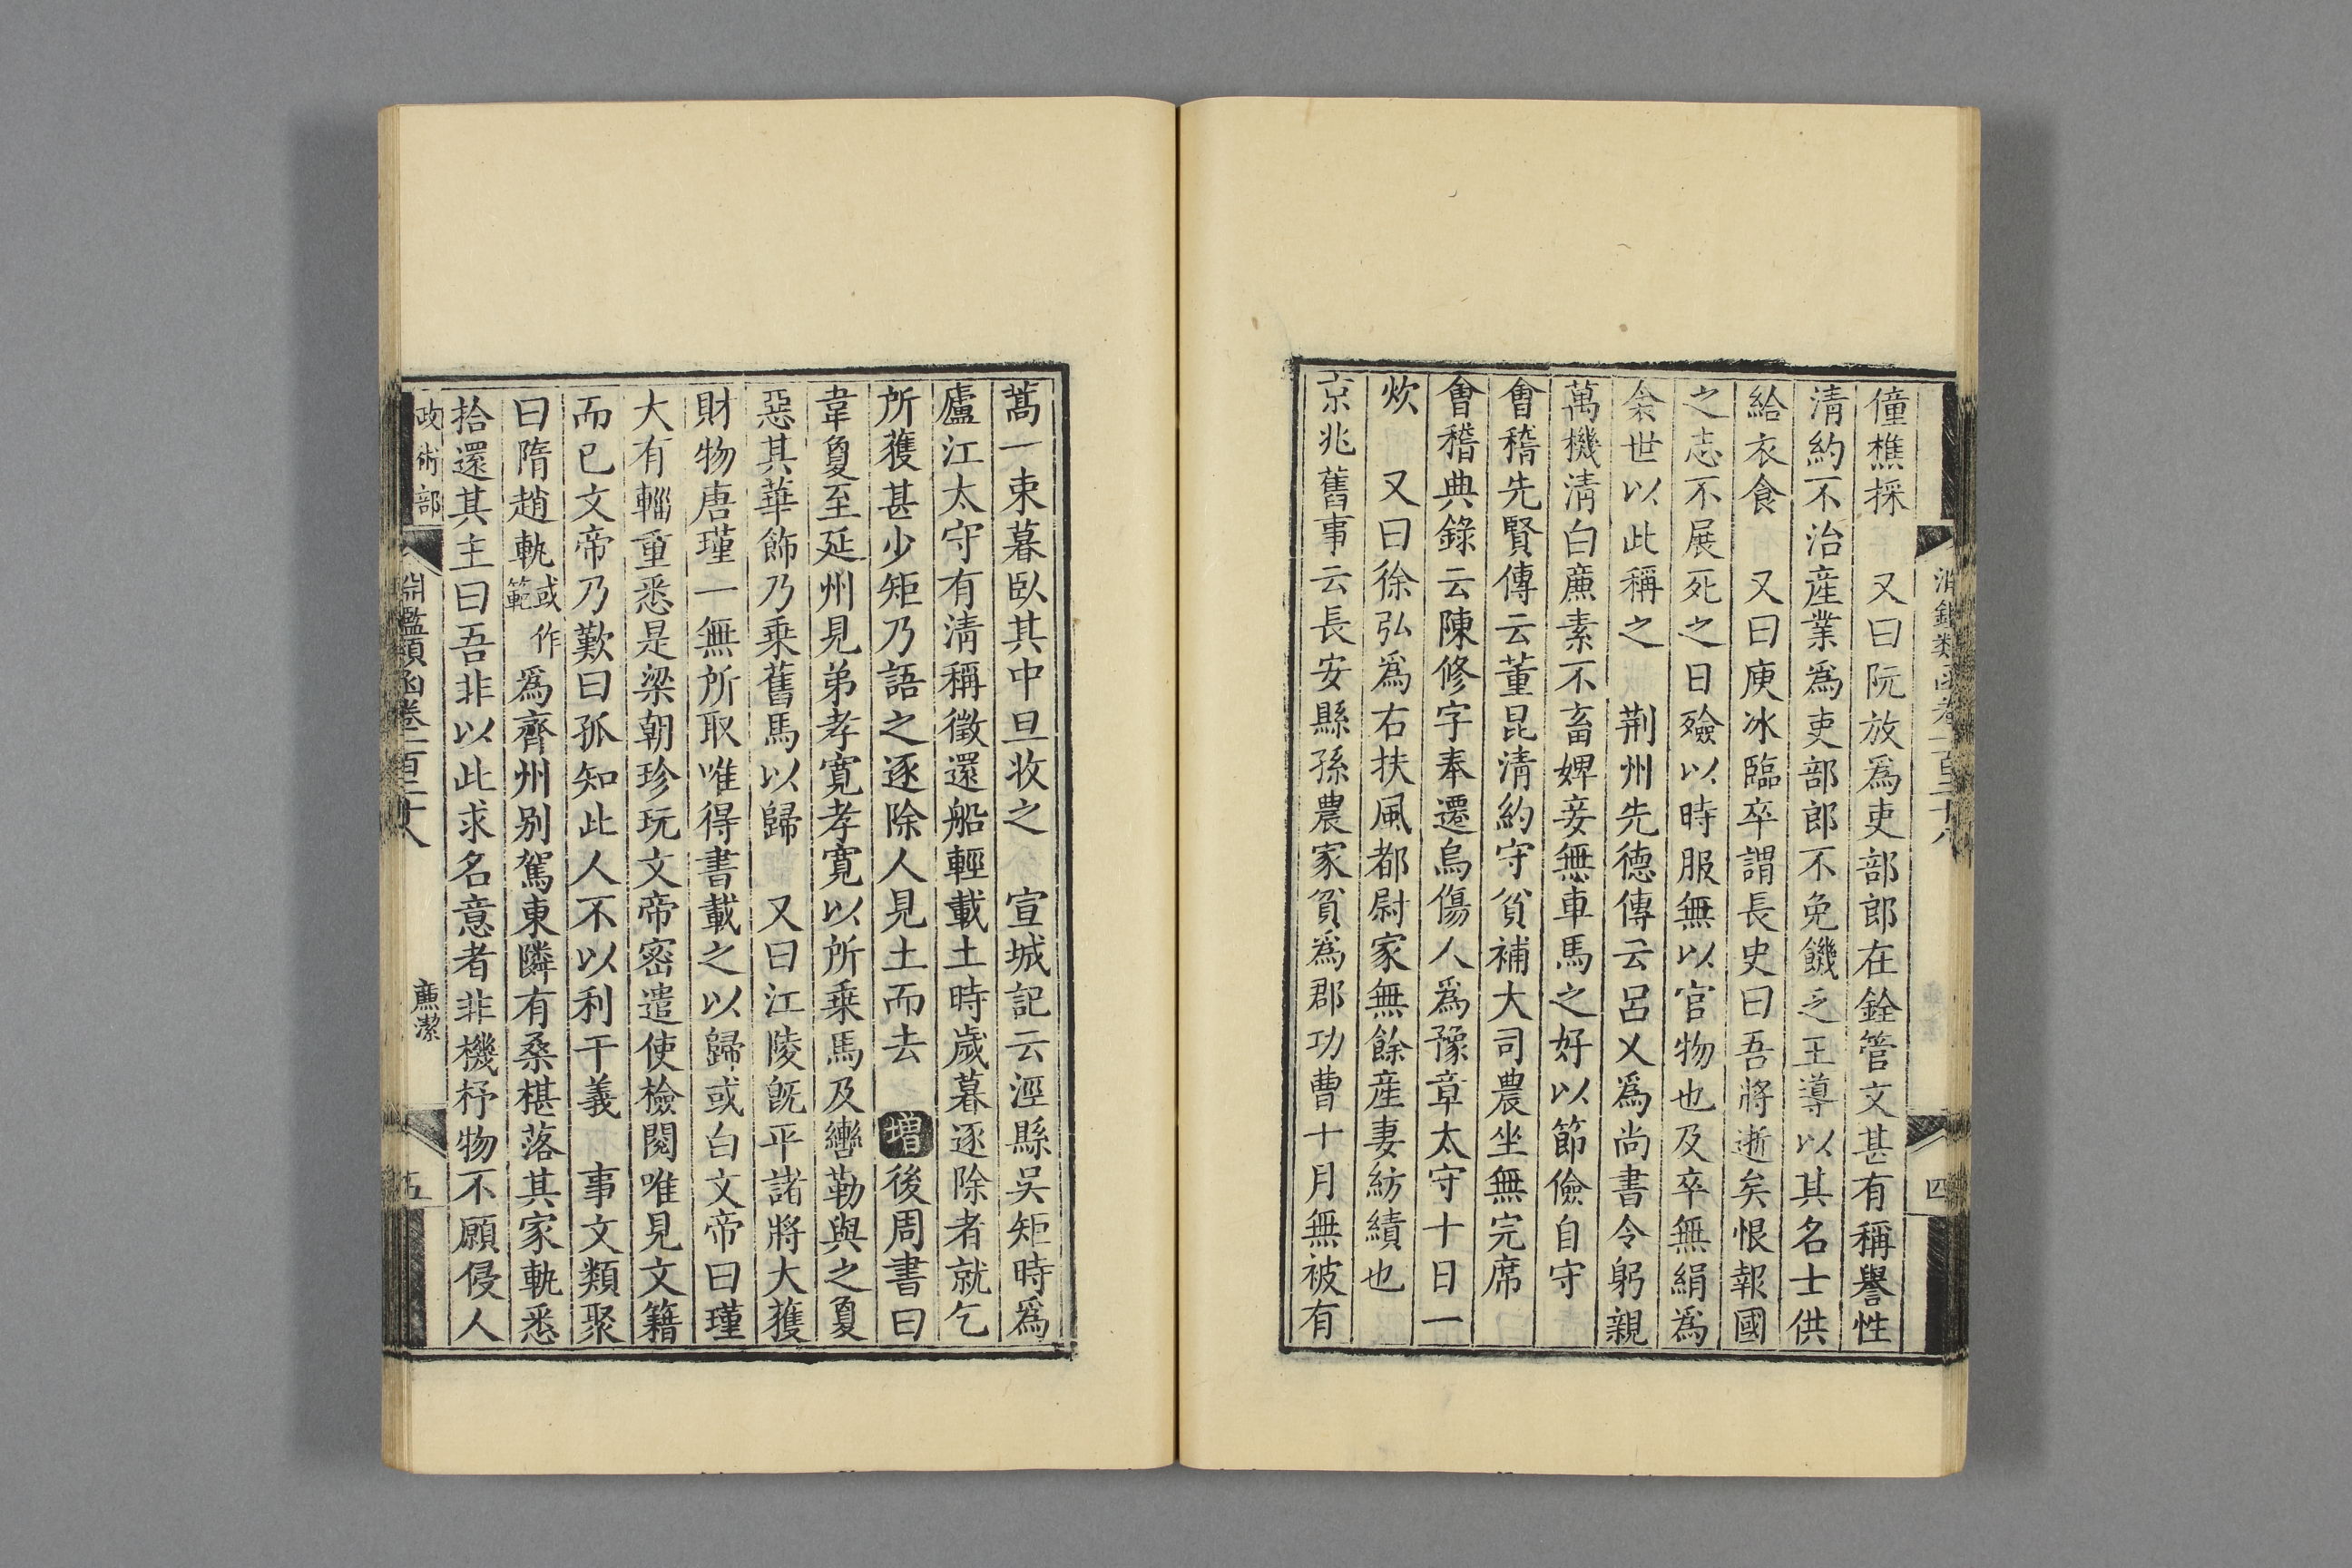 僮樵採　又曰阮放爲吏部郎在銓管文甚有稱譽性
清約不治産業爲吏部郎不免饑乏王導以其名士供
給衣食　又曰庾冰臨卒謂長史曰吾將逝矣恨報國
之志不展死之日殮以時服無以官物也及卒無絹爲
衾世以此稱之　荆州先德傳云呂乂爲尚書令躬親
萬機清白亷素不畜婢妾無車馬之好以節儉自守
會稽先賢傳云董昆清約守貧補大司農坐無完席
會稽典錄云陳修字奉遷烏傷人爲豫章太守十日一
炊　又曰徐弘爲右扶風都尉家無餘産妻紡績也
京兆舊事云長安縣孫農家貧爲郡功曹十月無被有
四
蒿一束暮臥其中旦收之　宣城記云涇縣吴矩時爲
廬江太守有清稱徵還船輕載土時歲暮逐除者就乞
所獲甚少矩乃語之逐除人見土而去　增後周書曰
韋敻至延州見弟孝寬孝寬以所乗馬及轡勒與之敻
惡其華飾乃乗舊馬以歸　又曰江陵旣平諸將大獲
財物唐瑾一無所取唯得書載之以歸或白文帝曰瑾
大有輜重悉是梁朝珍玩文帝密遣使檢閱唯見文籍
而已文帝乃歎曰孤知此人不以利干義　事文類聚
曰隋趙軌或作範爲齊州别駕東隣有桑椹落其家軌悉
拾還其主曰吾非以此求名意者非機杼物不願侵人
政術部　淵鑑類函卷一百二十八　亷潔　五